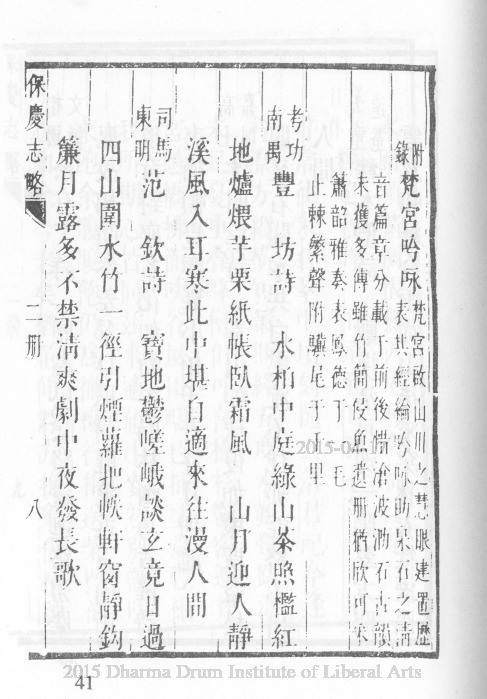 附錄 梵宮吟咏 梵宮啟山川之慧眼建置歷
表其經綸吟咏助泉石之清
音篇章分載于前後惜滄波泐石古韻
未獲多傳雖竹簡侵魚遺册猶欣可采
蕭韶雅奏表鳳德于一毛
止棘繁聲附驥尾于千里
考功南禺 豐 坊詩 水柏中庭綠山茶照檻紅
地爐煨芋栗紙帳臥霜風 山月迎人靜
溪風入耳寒此中堪自適來往漫人間
司馬東明 范 欽詩 寶地鬱嵯峨談玄竟日過
四山圍水竹一徑引煙蘿把帙軒窗靜鈎
簾月露多不禁清爽劇中夜發長歌
保慶志略 二册 八
2015-0
2015 Dharma Drum Institute of Liberal Arts
41